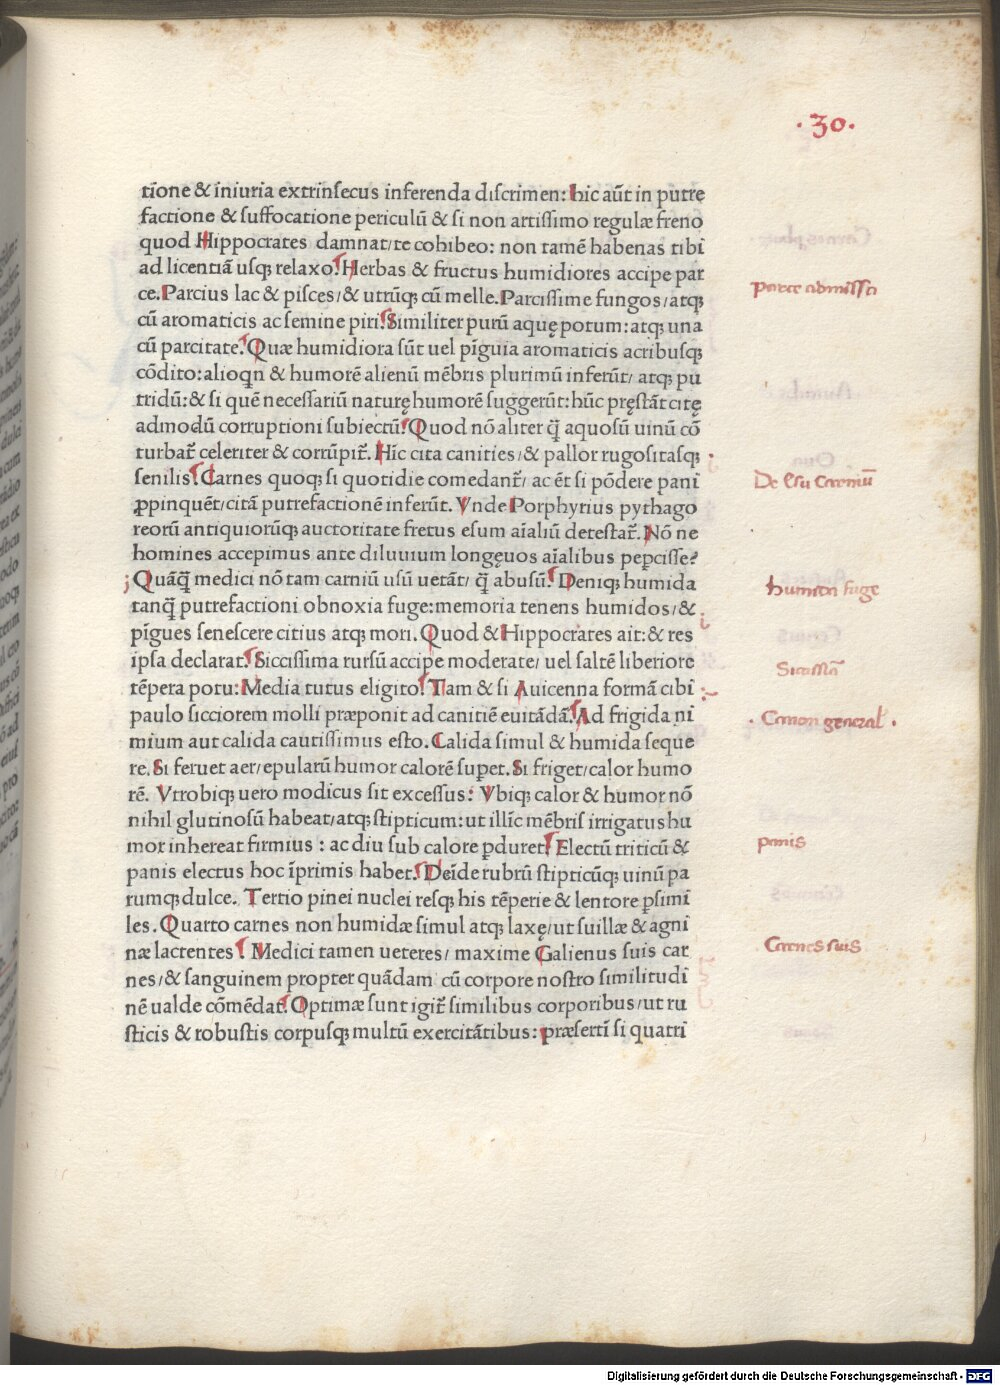 ·30·
tione & iniuria extrinsecus inferenda discrimen: hic aūt in putre
factione & suffocatione periculū & si non artissimo regulæ freno
quod Hippocrates damnat/te cohibeo: non tamē habenas tibi
ad licentiā usq; relaxo. Herbas & fructus humidiores accipe par
ce. Parcius lac & pisces/& utrūq; cū melle. Parcissime fungos/atq;
parce admissa
cū aromaticis ac semine piri. Similiter purū aquę potum: atq; una
cū parcitate. Quæ humidiora sūt uel pīguia aromaticis acribusq;
cōdito: alioqn & humorē alienū mēbris plurimū inferūt/ atq; pu
tridū: & si quē necessariū naturę humorē suggerūt: hūc pręstāt citę
admodū corruptioni subiectū. Quod nō aliter q̄ aquosū uinū cō
turbat̄ celeriter & corrūpit̄. Hīc cita canities/& pallor rugositasq;
senilis. Carnes quoq; si quotidie comedant̄/ ac ēt si pōdere pani
De Esu Carniū
ꝓpinquēt/citā putrefactionē inferūt. Vnde Porphyrius pythago
reorū antiquiorūq; auctoritate fretus esum aīaliū detestat̄. Nō ne
homines accepimus ante diluuium longęuos aīalibus peꝑcisse?
Quāq̄ medici nō tam carniū usū uetāt/ q̄ abusū. Deniq; humida
humida fuge
tanq̄ putrefactioni obnoxia fuge: memoria tenens humidos/&
pīgues senescere citius atq; mori. Quod & Hippocrates ait: & res
ipsa declarat. Siccissima rursū accipe moderate/ uel saltē liberiore
Siccissīa
tēpera potu: Media tutus eligito. Tam & si Auicenna formā cibi
paulo sicciorem molli præponit ad canitiē euitādā. Ad frigida ni
· Canon general ·
mium aut calida cautissimus esto. Calida simul & humida seque
re. Si feruet aer/epularū humor calorē suꝑet. Si friget/calor humo
rē. Vtrobiq; uero modicus sit excessus: Vbiq; calor & humor nō
nihil glutinosū habeat/atq; stipticum: ut illīc mēbris irrigatus hu
mor inhereat firmius: ac diu sub calore ꝑduret. Electū triticū &
panis
panis electus hoc īprimis habet. Deīde rubrū stipticūq; uinū pa
rumq; dulce. Tertio pinei nuclei resq; his tēperie & lentore ꝑsimi
les. Quarto carnes non humidæ simul atq; laxę/ut suillæ & agni
næ lactentes. Medici tamen ueteres/ maxime Galienus suis car
Carnes suis
nes/& sanguinem propter quādam cū corpore nostro similitudi
nē ualde cōmēdat. Optimæ sunt igit̄ similibus corporibus/ut ru
sticis & robustis corpusq; multū exercitātibus: præsertī si quatri
Digitalisierung gefördert durch die Deutsche Forschungsgemeinschaft - DFG